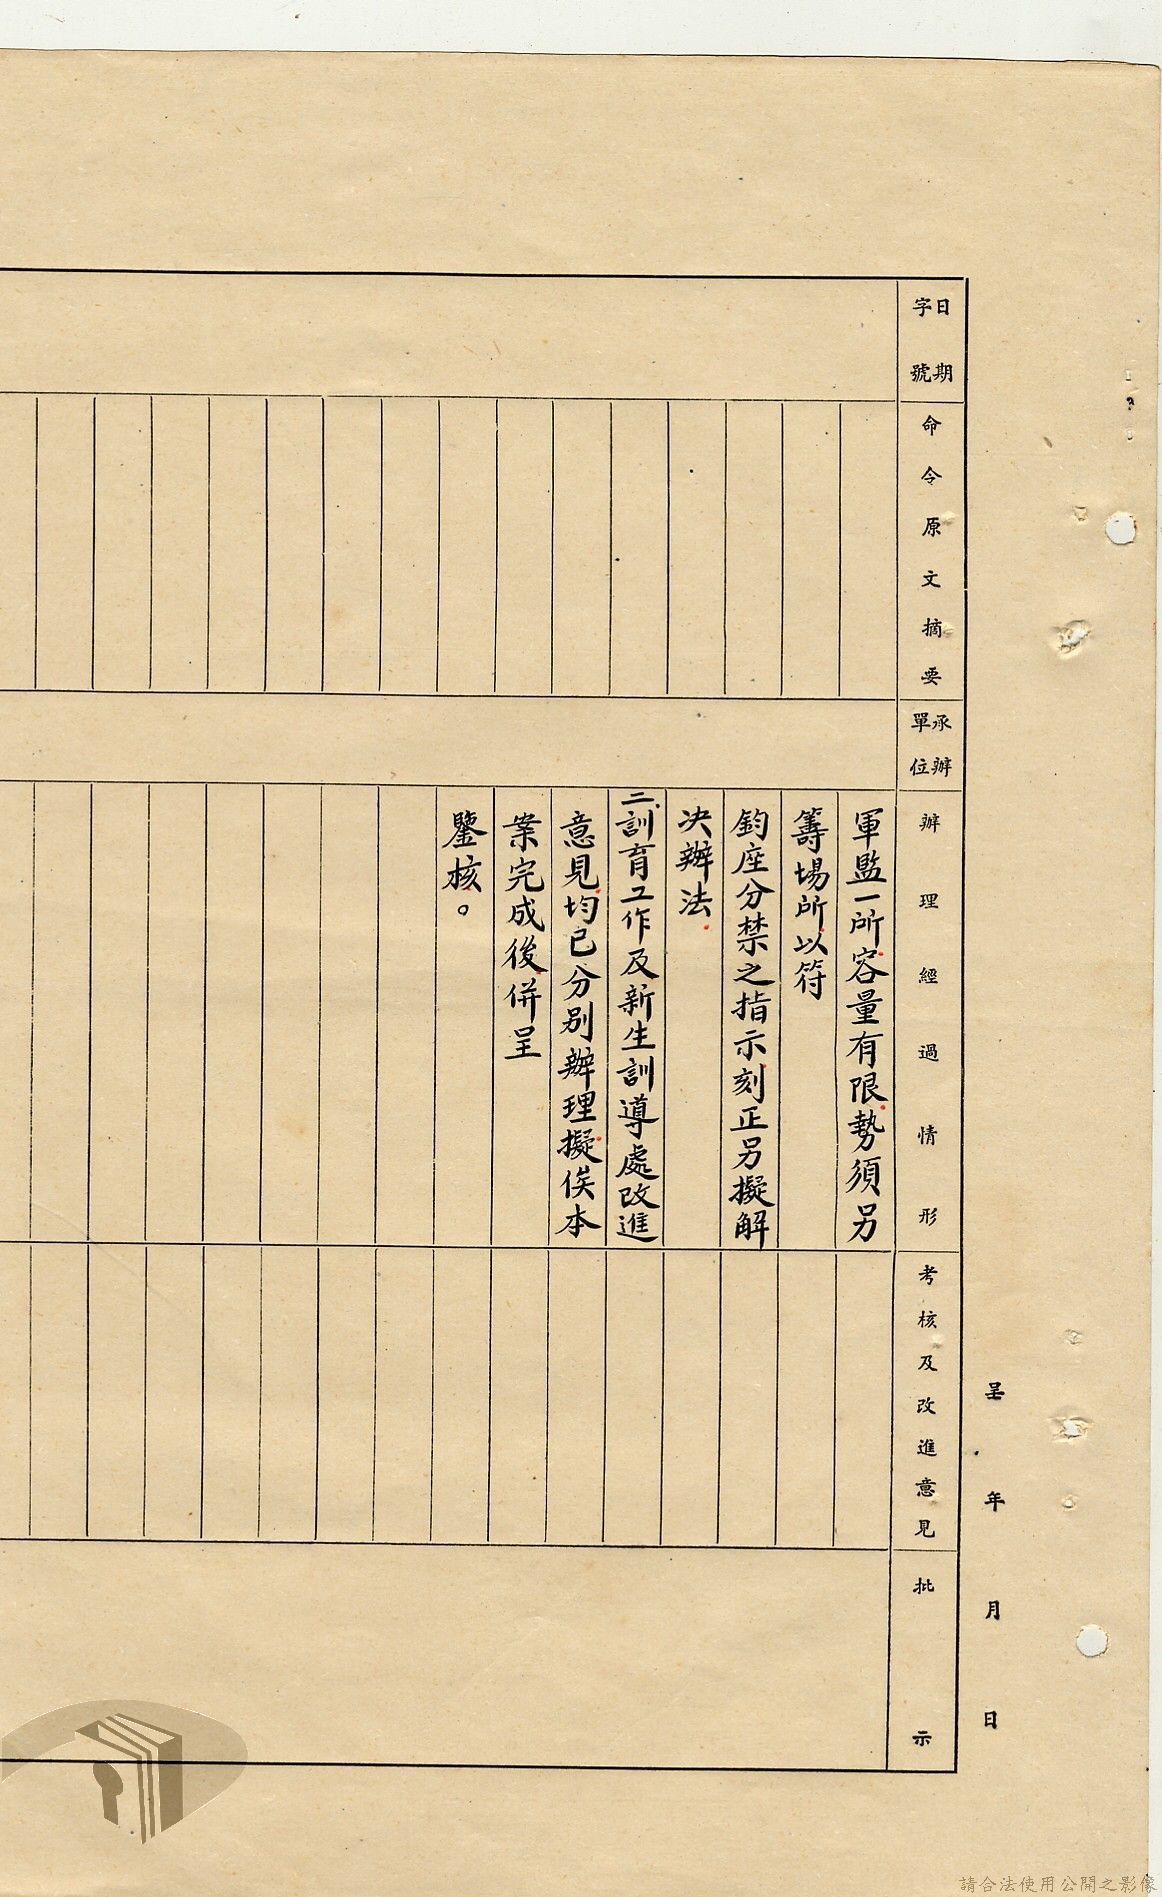 呈　年　月　日
日期
字號
命令原文摘要
承辦
單位
辦理經過情形
考核及改進意見
批示
軍監一所容量有限勢須另
籌場所以符
鈞座分禁之指示刻正另擬解
決辦法
二.訓育工作及新生訓導處改進
意見均已分别辦理擬俟本
案完成後併呈
鑒核。
請合法使用公開之影像